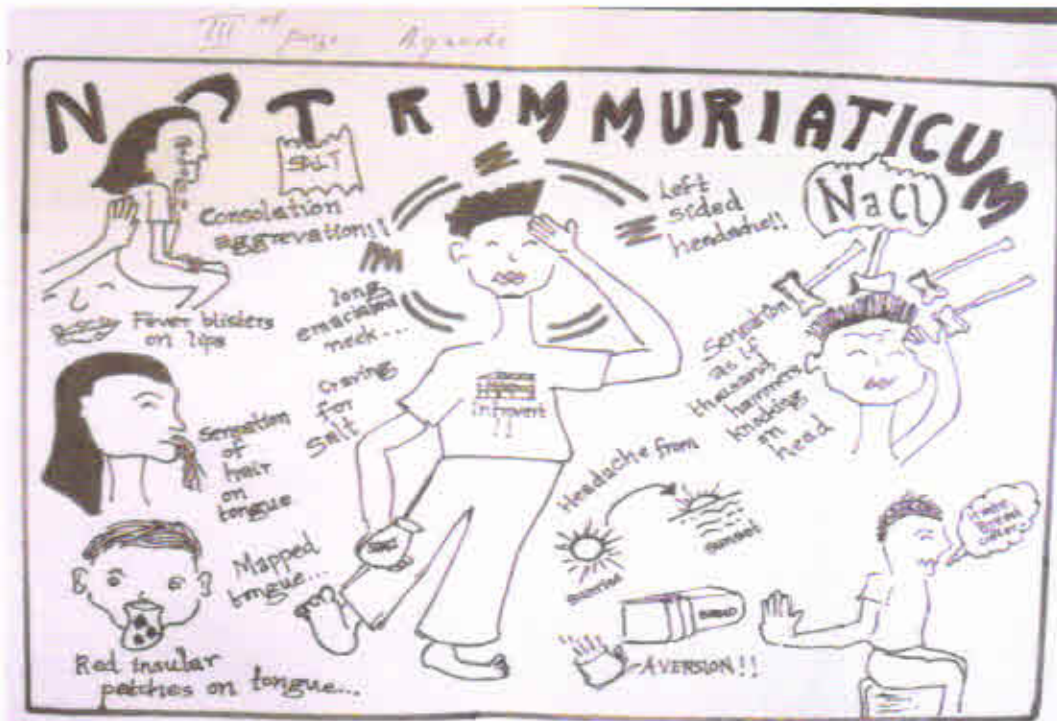 III
NATRUM MURIATICUM
SALT
Consolation
aggrevation!!
Left
sided
headache!!
NaCl
Fever blisters
on lips
long
emaciated
neck...
Craving
for
Salt
introvert
!!
Sensation
as if
thousand
hammers
knocking
on
head
Sensation
of
hair
on
tongue
Headache from
sunrise
sunset
Mapped
tongue...
Red insular
patches on tongue...
BREAD
AVERSION!!